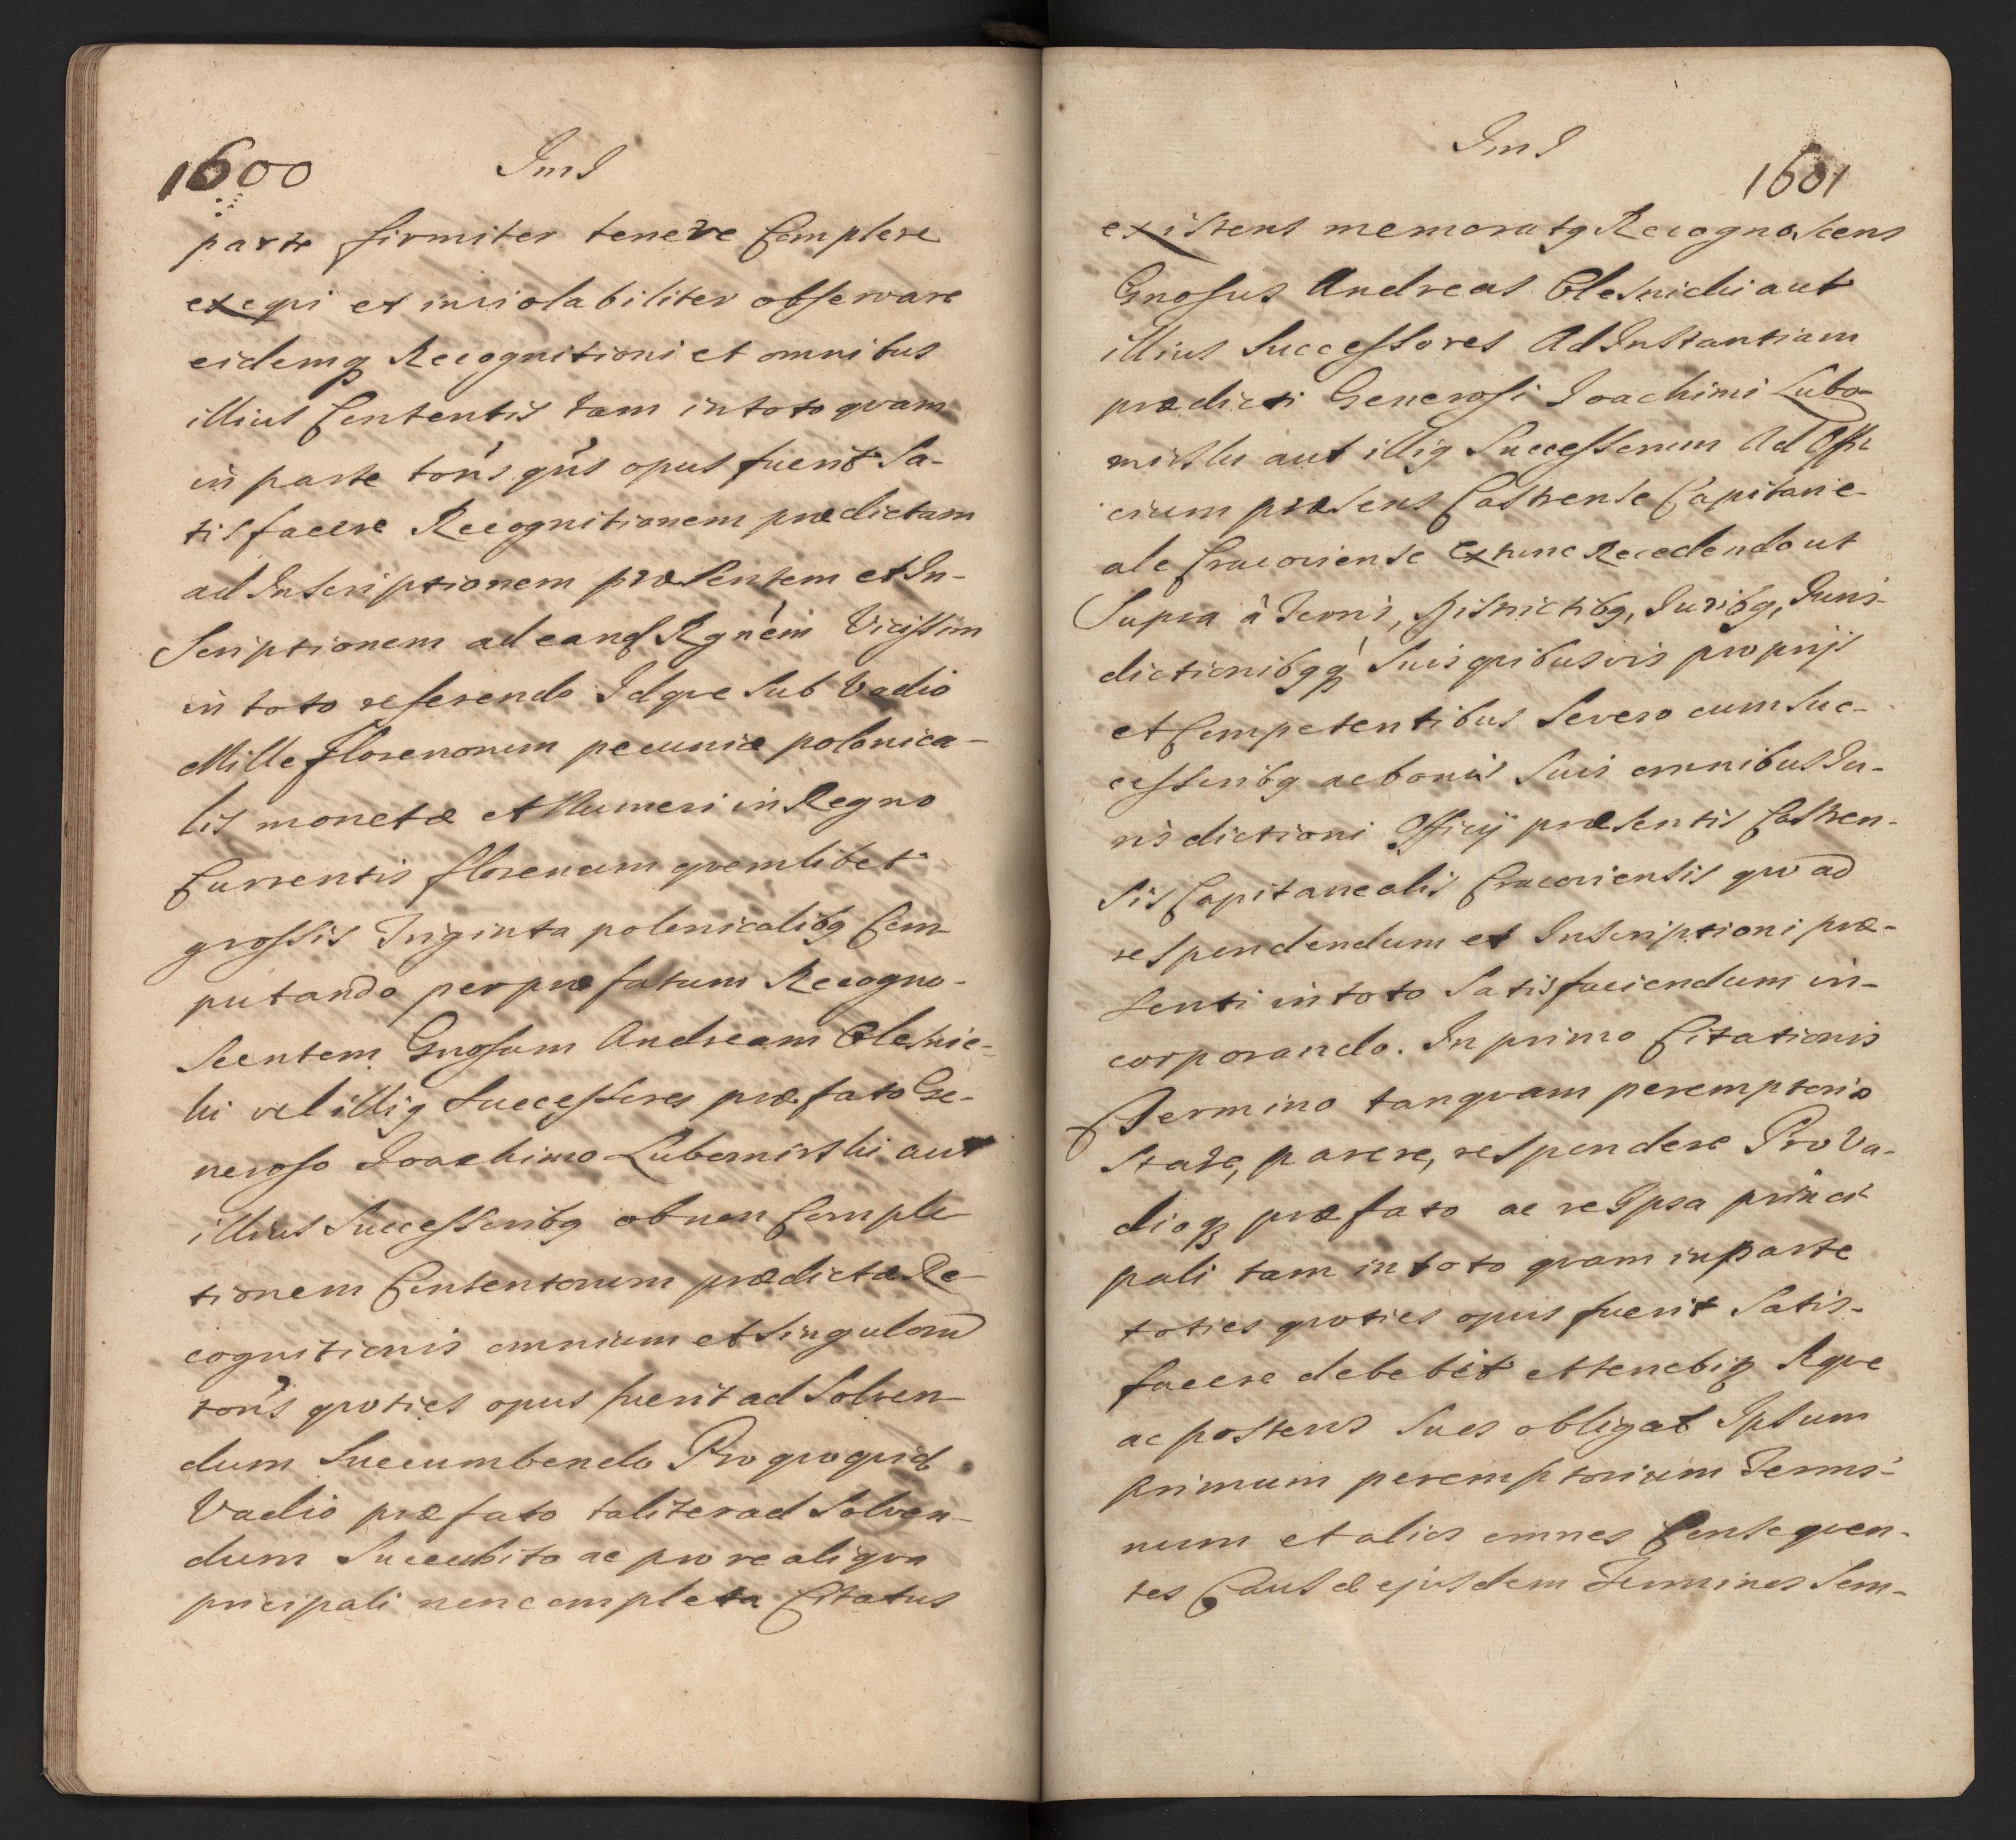 1600
ImI
parte firmiter tenere Complere
exeqvi et inviolabiliter observare
eidemq Recognitioni et omnibus
illius Contentis tam in toto qvam
in parte toñs qñs opus fuerit Sa-
tisfacere Recognitionem prædictam
ad Inscriptionem præsentem et In-
Scriptionem ad eand Rgnem Vicissim
in toto referendo Idqve Sub Vadio
Mille florenorum pecuniæ polonica-
lis monetæ et Numeri in Regno
Currentis florenum qvemlibet
grossis Triginta polonicalibq Com-
putando per præfatum Recogno-
Scentem Gnosum Andream Olesnic-
ki vel illiq Successores præfato Ge-
neroso Joachimo Lubomirski aut
illius Successoribq ob non Comple
tionem Contentorum prædictæ Re-
cognitionis omnium et Singulorū
toñs qvoties opus fuerit ad Solven-
dum Succumbendo Pro qvoqvid
Vadio præfato taliter ad Solven-
dum Succubito ac pro re aliqva
pricipali non completa Citatus
ImI
1601
existens memoratq Recognoscens
Gnosus Andreas Olesnicki aut
illius Successores Ad Instantiam
prædicti Generosi Joachimi Lubo-
mirski aut illiq Successorum Ad Offi
cium præsens Castrense Capitane-
ale Cracoviense Extunc Recedendo ut
Supra à Terris, Districtibq, Juribq, Juris-
dictionibqq Suis qvibusvis proprijs
et Competentibus Se vero cum Suc-
cessoribq ac bonis Suis omnibus Ju-
risdictioni Officij præsentis Castren-
Sis Capitanealis Cracoviensis qvo ad
respondendum et Inscriptioni præ-
senti in toto Satisfaciendum in-
corporando. In primo Citationis
Termino tanqvam peremptorio
Stare, parere, respondere Pro Va-
dioq præfato ac re Ipsa princi
pali tam in toto qvam in parte
toties qvoties opus fuerit Satis-
facere debebit et tenebiq Seqve
ac posteros Suos obligat Ipsum
primum peremptorium Termi-
num et alios omnes Conseqven-
tes Causæ ejusdem Terminos Sem-